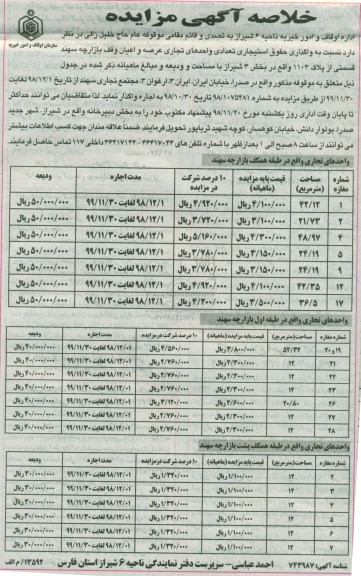 خلاصه آگهی مزایده
سازمان اوقاف و امور خیریه
اداره اوقاف و امور خیریه ناحیه ۶ شیراز به تصدی و قائم مقامی موقوفه عام حاج خلیل زالی در نظر
دارد نسبت به واگذاری حقوق استیجاری تعدادی واحدهای تجاری عرصه و اعیان وقف بازارچه سهند
قسمتی از پلاک ۱۱۰۳ واقع در بخش ۴ شیراز با مساحت و ودیعه و مبالغ ماهیانه ذکر شده در جدول
ذیل متعلق به موقوفه مذکور واقع در صدرا، خیابان ایران، ایران ۳، ارغوان ۳، مجتمع تجاری سهند از تاریخ ۹۸/۱۲/۱ لغایت
۹۹/۱۱/۳۰ از طریق مزایده به شماره تاریخ ۹۸/۱۰/۳۰ به اجاره واگذار نماید. لذا متقاضیان می توانند حداکثر
تا پایان وقت اداری روز یکشنبه مورخ ۹۸/۱۱/۲۰ پیشنهاد مکتوب خود را به بخش دبیرخانه واقع در شیراز، شهر جدید
صدرا، بولوار دانش، خیابان کوهسار، کوچه شهید تحویل فرمایند ضمناً علاقه مندان جهت کسب اطلاعات بیشتر
می توانند از ساعت ۸ صبح الی ۱ بعدازظهر با شماره تلفن های داخلی ۱۱۷ تماس حاصل فرمایند.
واحدهای تجاری واقع در طبقه همکف بازارچه سهند
شماره مغازه | مساحت (مترمربع) | قیمت پایه مزایده (ماهیانه) | ۱۰ درصد شرکت در مزایده | مدت اجاره | ودیعه
۱ | ۴۲/۱۲ | ۴/۱۰۰/۰۰۰ ریال | ۴/۹۲۰/۰۰۰ ریال | ۹۸/۱۲/۱ لغایت ۹۹/۱۱/۳۰ | ۵۰/۰۰۰/۰۰۰ ریال
۲ | ۲۱/۷۳ | ۳/۱۰۰/۰۰۰ ریال | ۳/۷۲۰/۰۰۰ ریال | ۹۸/۱۲/۱ لغایت ۹۹/۱۱/۳۰ | ۵۰/۰۰۰/۰۰۰ ریال
۴ | ۴۸/۹۷ | ۴/۳۰۰/۰۰۰ ریال | ۵/۱۶۰/۰۰۰ ریال | ۹۸/۱۲/۱ لغایت ۹۹/۱۱/۳۰ | ۵۰/۰۰۰/۰۰۰ ریال
۵ | ۲۴/۱۹ | ۳/۱۵۰/۰۰۰ ریال | ۳/۷۸۰/۰۰۰ ریال | ۹۸/۱۲/۱ لغایت ۹۹/۱۱/۳۰ | ۵۰/۰۰۰/۰۰۰ ریال
۹ | ۲۴/۱۹ | ۳/۱۵۰/۰۰۰ ریال | ۳/۷۸۰/۰۰۰ ریال | ۹۸/۱۲/۱ لغایت ۹۹/۱۱/۳۰ | ۵۰/۰۰۰/۰۰۰ ریال
۱۲ | ۴۲/۳۵ | ۴/۱۰۰/۰۰۰ ریال | ۴/۹۲۰/۰۰۰ ریال | ۹۸/۱۲/۱ لغایت ۹۹/۱۱/۳۰ | ۵۰/۰۰۰/۰۰۰ ریال
۱۷ | ۳۶/۵ | ۳/۵۰۰/۰۰۰ ریال | ۴/۲۰۰/۰۰۰ ریال | ۹۸/۱۲/۱ لغایت ۹۹/۱۱/۳۰ | ۵۰/۰۰۰/۰۰۰ ریال
واحدهای تجاری واقع در طبقه اول بازارچه سهند
شماره مغازه | مساحت (مترمربع) | قیمت پایه مزایده (ماهیانه) | ۱۰ درصد شرکت در مزایده | مدت اجاره | ودیعه
۱۹ و ۲۰ | ۵۲/۳۴ | ۳/۸۰۰/۰۰۰ ریال | ۴/۵۶۰/۰۰۰ ریال | ۹۸/۱۲/۰۱ لغایت ۹۹/۱۱/۳۰ | ۴۰/۰۰۰/۰۰۰ ریال
۲۱ | ۱۲ | ۲/۳۰۰/۰۰۰ ریال | ۲/۷۶۰/۰۰۰ ریال | ۹۸/۱۲/۰۱ لغایت ۹۹/۱۱/۳۰
۲۲ | ۱۲ | ۲/۳۰۰/۰۰۰ ریال | ۲/۷۶۰/۰۰۰ ریال | ۹۸/۱۲/۰۱ لغایت ۹۹/۱۱/۳۰
۲۳ | ۱۲ | ۲/۳۰۰/۰۰۰ ریال | ۲/۷۶۰/۰۰۰ ریال | ۹۸/۱۲/۰۱ لغایت ۹۹/۱۱/۳۰
۲۶ | ۲۰/۸۰ | ۲/۶۰۰/۰۰۰ ریال | ۳/۱۲۰/۰۰۰ ریال | ۹۸/۱۲/۰۱ لغایت ۹۹/۱۱/۳۰
۲۷ | ۱۲ | ۲/۳۰۰/۰۰۰ ریال | ۲/۷۶۰/۰۰۰ ریال | ۹۸/۱۲/۰۱ لغایت ۹۹/۱۱/۳۰
۲۸ | ۱۲ | ۲/۳۰۰/۰۰۰ ریال | ۲/۷۶۰/۰۰۰ ریال | ۹۸/۱۲/۰۱ لغایت ۹۹/۱۱/۳۰
واحدهای تجاری واقع در طبقه همکف پشت بازارچه سهند
شماره مغازه | مساحت (مترمربع) | قیمت پایه مزایده (ماهیانه) | ۱۰ درصد شرکت در مزایده | مدت اجاره | ودیعه
۲ | ۱۲ | ۱/۱۰۰/۰۰۰ ریال | ۱/۳۲۰/۰۰۰ ریال | ۹۸/۱۲/۰۱ لغایت ۹۹/۱۱/۳۰ | ۳۰/۰۰۰/۰۰۰ ریال
۳ | ۱۲ | ۱/۱۰۰/۰۰۰ ریال | ۱/۳۲۰/۰۰۰ ریال | ۹۸/۱۲/۰۱ لغایت ۹۹/۱۱/۳۰ | ۳۰/۰۰۰/۰۰۰ ریال
۴ | ۱۲ | ۱/۱۰۰/۰۰۰ ریال | ۱/۳۲۰/۰۰۰ ریال | ۹۸/۱۲/۰۱ لغایت ۹۹/۱۱/۳۰ | ۳۰/۰۰۰/۰۰۰ ریال
۵ | ۱۲ | ۱/۱۰۰/۰۰۰ ریال | ۱/۳۲۰/۰۰۰ ریال | ۹۸/۱۲/۰۱ لغایت ۹۹/۱۱/۳۰ | ۳۰/۰۰۰/۰۰۰ ریال
۶ | ۱۲ | ۱/۱۰۰/۰۰۰ ریال | ۱/۳۲۰/۰۰۰ ریال | ۹۸/۱۲/۰۱ لغایت ۹۹/۱۱/۳۰ | ۳۰/۰۰۰/۰۰۰ ریال
۷ | ۱۲ | ۱/۱۰۰/۰۰۰ ریال | ۱/۳۲۰/۰۰۰ ریال | ۹۸/۱۲/۰۱ لغایت ۹۹/۱۱/۳۰ | ۳۰/۰۰۰/۰۰۰ ریال
شناسه آگهی: ۷۴۳۹۸۷ احمد عباسی - سرپرست دفتر نمایندگی ناحیه ۶ شیراز استان فارس ۱۳۵۹۲/م الف